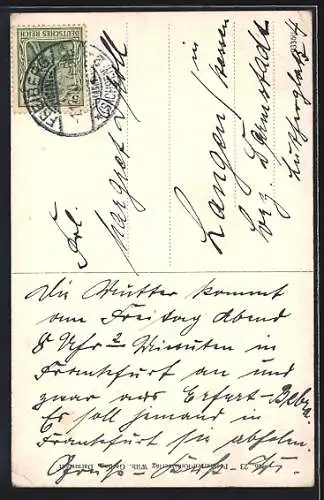 DEUTSCHES REICH
FREIBERG
(SACHSEN)
Frl.
Margret
in
Langen/Hessen
bez. Darmstadt
Lutherplatz 4
Die Mutter kommt
am Freitag Abend
8 Uhr 2 Minuten in
Frankfurt an und
zwar aus Erfurt-Bebra.
Es soll jemand in
Frankfurt sie abholen.
Gruss - Kuss